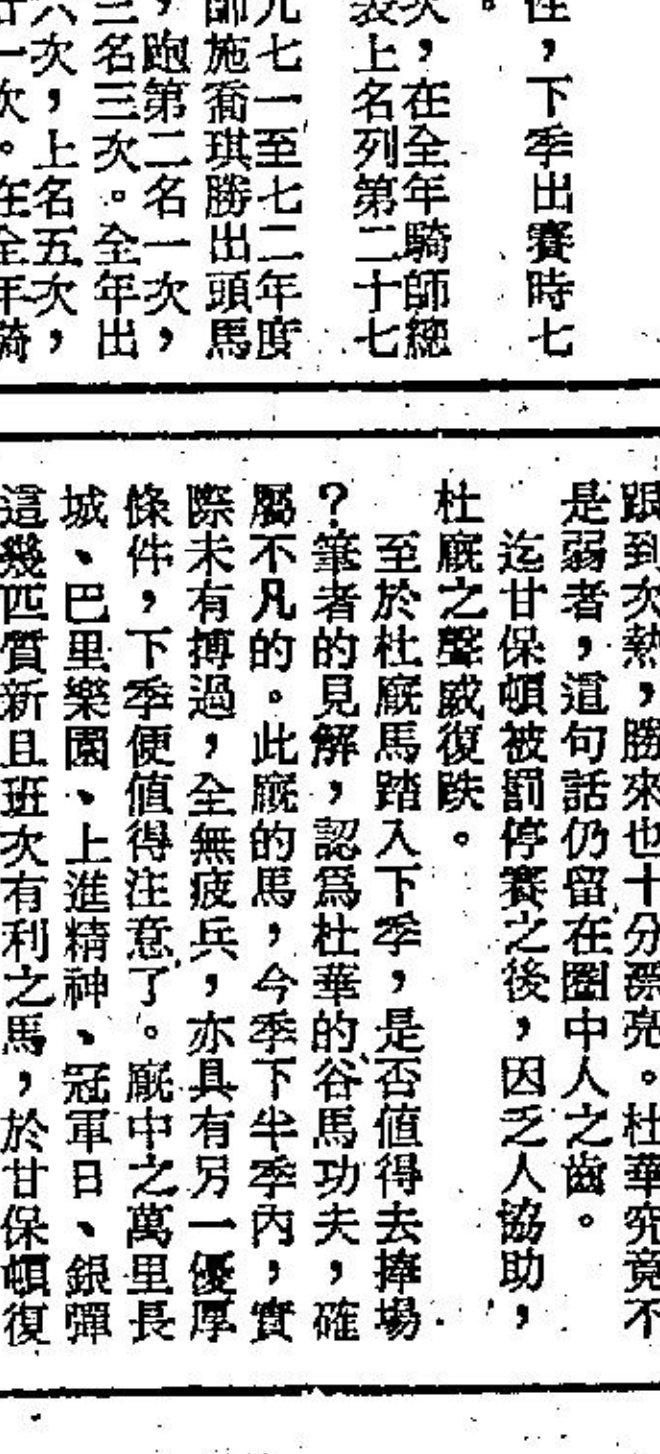 性，下季出賽時七
。
次，在全年騎師總
表上名列第二十七
九七一至七二年度
師施喬琪勝出頭馬
，跑第二名一次，
三名三次。全年出
六次，上名五次，
一次。在全年騎
跟到次熱，勝來也十分漂亮。杜華究竟不
是弱者，這句話仍留在圈中人之齒。
迄甘保頓被罰停賽之後，因乏人協助，
杜廐之聲威復跌。
至於杜廐馬踏入下季，是否值得去捧場
？筆者的見解，認爲杜華的谷馬功夫，確
屬不凡的。此廐的馬，今季下半季內，實
際未有搏過，全無疲兵，亦具有另一優厚
條件，下季便值得注意了。廐中之萬里長
城、巴里樂園、上進精神、冠軍日、銀彈
這幾匹質新且班次有利之馬，於甘保頓復